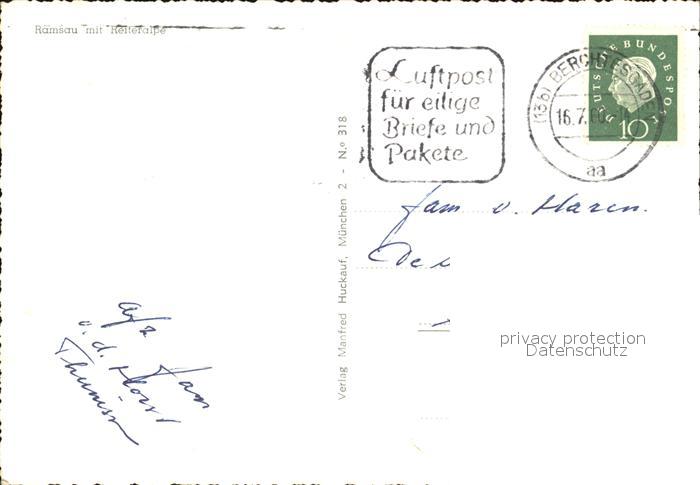 Ramsau mit Reiteralpe
Luftpost
für eilige
Briefe und
Pakete
(13b) BERCHTESGADEN
16.7.60
aa
DEUTSCHE BUNDESPOST
10
Verlag Manfred Huckauf, München 2 - N.º 318
Fam v. Haren.
afz. Fam
v. d. Horst
privacy protection
Datenschutz